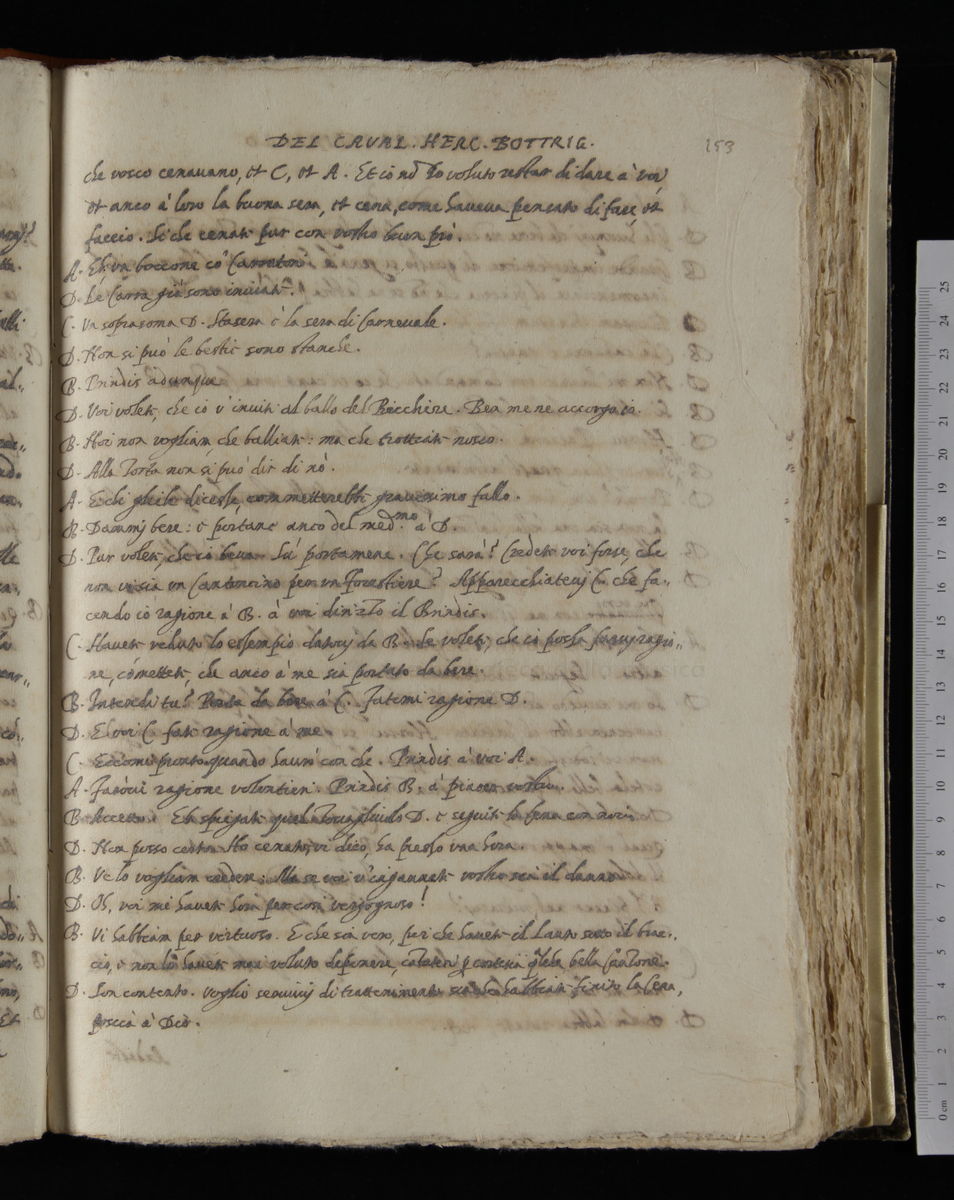 DEL CAVAL. HERC. BOTTRIG. 153
che vosco cenauano, et C, et A. Et io nõ hò voluto restar di dare à voi
et anco à loro la buona sera, et cena, come haueua pensato di fare, et
faccio. Si che cenate pur con vostro buon prò.
A. Eh un boccone cõ
D. Le Carra già sono inuiate.
C. Una soprasoma D. Stasera è la sera di Carneuale.
D. Non si può le bestie sono stanche.
B. Prindis adunque
D. Voi volete, che io v'inuiti al ballo del Bicchiere. Ben me ne accorgo io.
B. Noi non vogliam che balliate: ma che trottiate nosco.
D. Alla Torta non si può dir di nò.
A. E chi gliele dicesse, commetterebbe grauissimo fallo.
B. Dammi bere: e portane anco del med.mo à D.
D. Pur volete, che io beua. Sù portamene. Che sarà? Credete voi forse, che
non vi sia un Cantoncino per un Forestiere? Apparecchiateuj C. che fa,,
cendo io ragione à B. à voi dirizzo il Brindis.
C. Hauete veduto lo essempio datouj da B. se volete, che io possa farui ragio,,
ne, cõmettete, che anco à me sia portato da bere.
B. Intendi tu? Porta da bere à C. Fatemi ragione D.
D. E voi C. fate ragione à me.
C. Eccomi pronto quando haurò con che. Prindis à voi A.
A. Faròui ragione volontieri. Prindis B. à piacer vostro.
B. Accetto. Eh spiegate quel Touagliuolo D. e seguite la Cena con noi.
D. Non posso certo. Hò cenato, vi dico, hà presso una hora.
B. Ve lo vogliam creder: Ma se voi v'ingannate vostro sia il danno
D. Oh, voi mi hauete hora per così vergognoso!
B. Vi habbiam per virtuoso. E che sia vero, perche hauete il Lauto sotto il brac,,
cio, e non lo hauete mai voluto deponere, cantateci per cortesia qualche bella Canzone.
D. Son contento. voglio seruirui di trattenimento habbiate finito la Cena,
poscia à Dio.